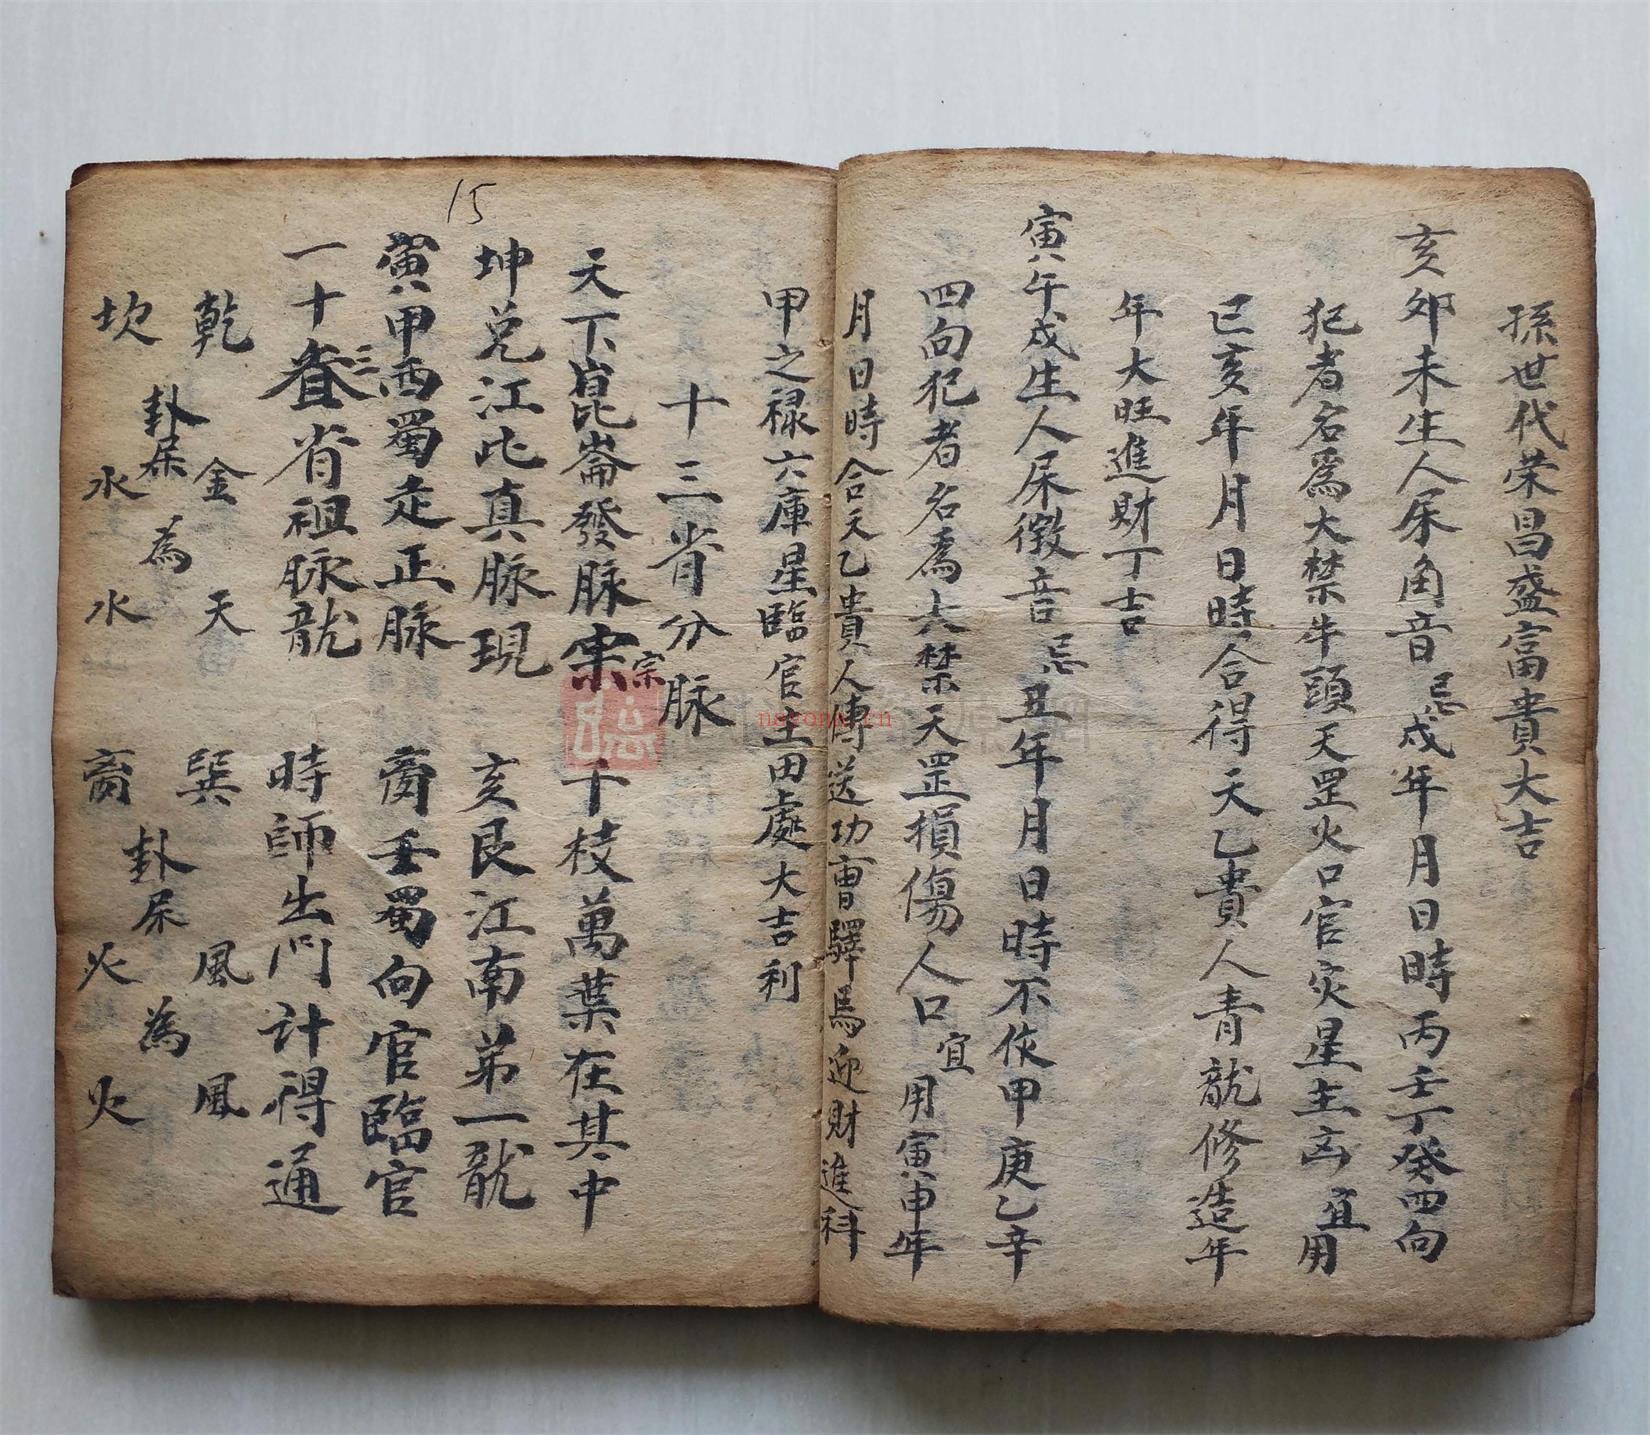 孫世代荣昌盛富貴大吉
亥夘未生人屎角音忌戍年月日時丙壬丁癸四向
犯者名爲大禁牛頭天罡火口官灾星主凶宜用
巳亥年月日時合得天乙貴人青龍修造年
年大旺進財丁吉
寅午戍生人屎徵音忌丑年月日時不作甲庚乙辛
四向犯者名爲大禁天罡損傷人口宜用寅申年
月日時合天乙貴人傳送功曹驛馬迎財進科
甲之禄六庫星臨官土田處大吉利
十三省分脉
天下崑崙發脉宗宗 千枝萬葉在其中
坤兑江北真脉現 亥艮江南弟一龍
寅甲西蜀走正脉 离壬蜀向官臨官
一十三省祖脉龍 時師出门计得通
乾金天 巽風風
卦屎為 卦屎為
坎水水 离火火
15
nayona.cn